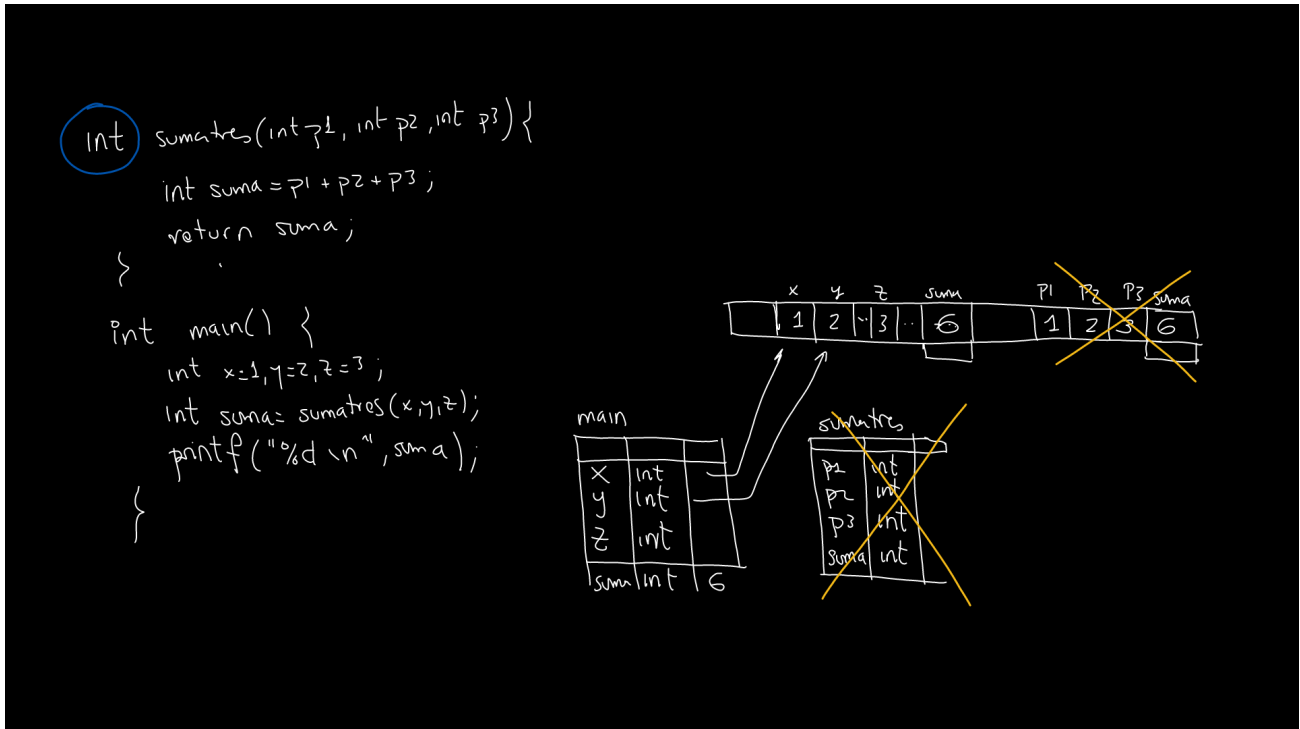 int sumatres(int p1, int p2, int p3) {
int suma = p1 + p2 + p3;
return suma;
}
int main() {
int x=1, y=2, z=3;
int suma= sumatres(x,y,z);
printf("%d \n", suma);
}
x y z suma p1 p2 p3 suma
1 2 .. 3 .. 6 1 2 3 6
main
x int
y int
z int
suma int 6
sumatres
p1 int
p2 int
p3 int
suma int